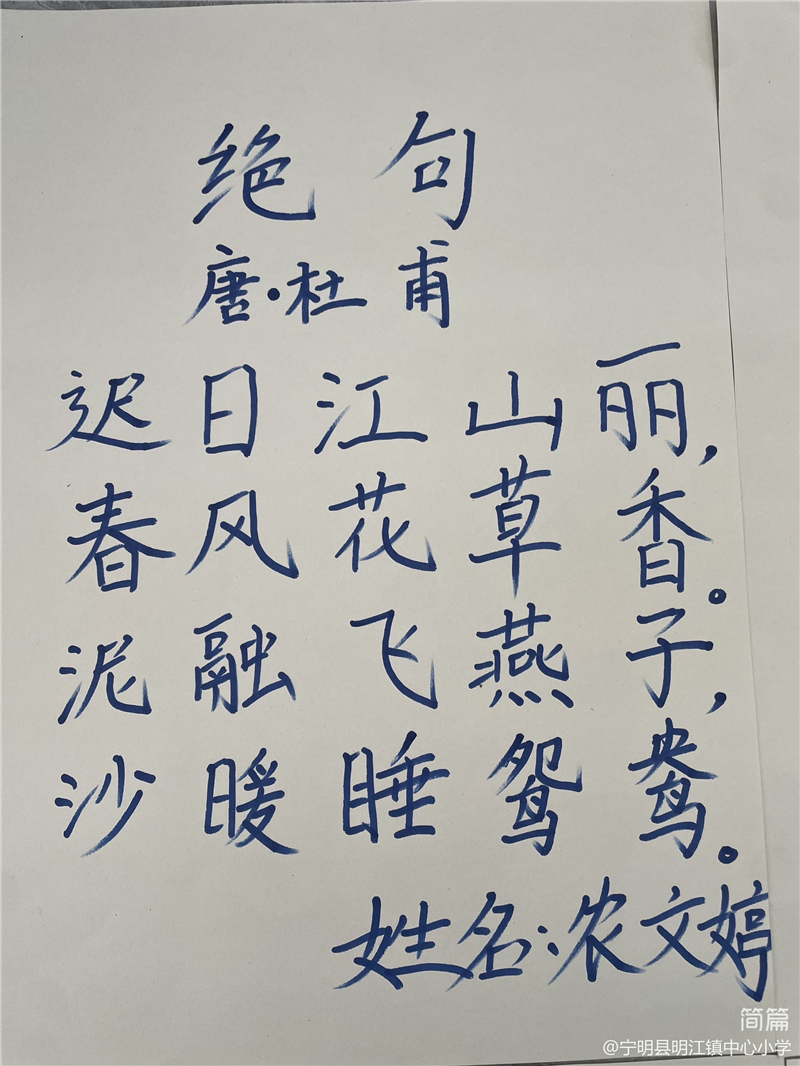 绝句
唐·杜甫
迟日江山丽，
春风花草香。
泥融飞燕子，
沙暖睡鸳鸯。
姓名：农文婷
简篇
@宁明县明江镇中心小学